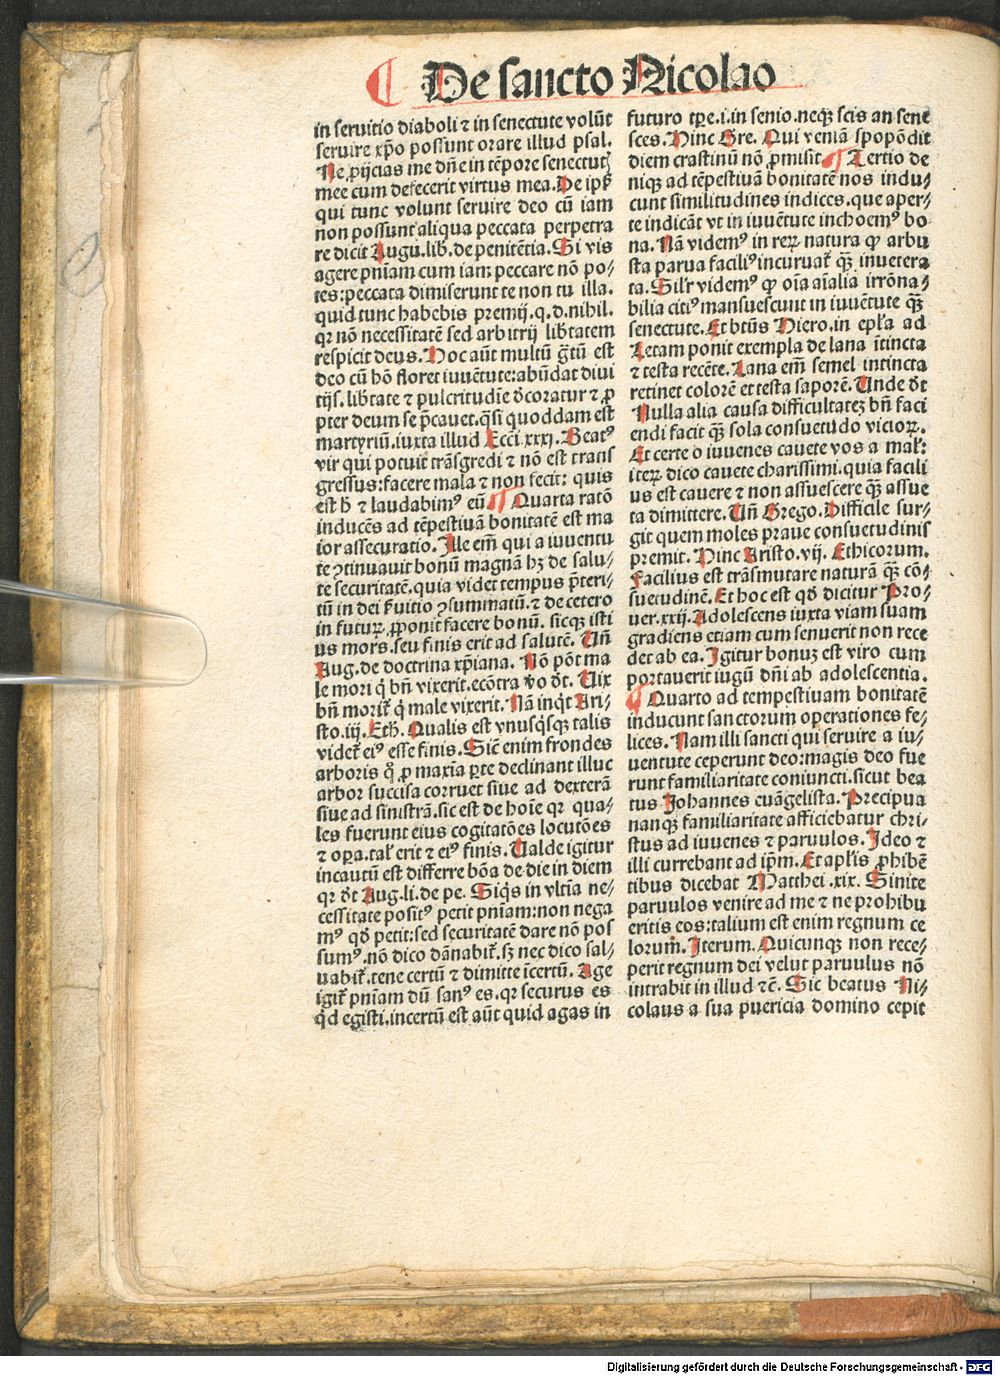 De sancto Nicolao
in seruitio diaboli ⁊ in senectute volūt
seruire xp̄o possunt orare illud psal.
Ne ꝓijcias me dn̄e in tēpore senectut
mee cum defecerit virtus mea. De ip̄
qui tunc volunt seruire deo cū iam
non possunt aliqua peccata perpetra
re dicit Augu. lib. de penitētia. Si vis
agere pn̄iam cum iam peccare nō po⸗
tes: peccata dimiserunt te non tu illa.
quid tunc habebis premij. q. d. nihil.
qꝛ nō necessitatē sed arbitrij lib̄tatem
respicit deus. Hoc aūt multū ḡtū est
deo cū hō floret iuuētute: abūdat diui
tijs. lib̄tate ⁊ pulcritudīe d̄coratur ⁊ ꝓ
pter deum se p̄cauet. q̄si quoddam est
martyriū. iuxta illud Ecc̄i. xxxi. Beatꝰ
vir qui potuit trāsgredi ⁊ nō est trans
gressus: facere mala ⁊ non fecit: quis
est h̄ ⁊ laudabimꝰ eū ¶ Quarta ratō
inducēs ad tēpestiuā bonitatē est ma
ior assecuratio. Ille em̄ qui a iuuentu
te ꝯtinuauit bonū magnā hꝫ de salu⸗
te securitatē. quia videt tempus p̄teri⸗
tū in dei ẜuitio ꝯsummatū. ⁊ de cetero
in futuꝝ ꝓponit facere bonū. sicqꝫ isti
us mors. seu finis erit ad salutē. Un̄
Aug. de doctrina xp̄iana. Nō pōt ma
le mori q̇ bn̄ vixerit. ecōtra v̄o d̄t. Uix
bn̄ morit̄ q̇ male vixerit. Nā inq̇t Ari⸗
sto. iij. Eth̄. Qualis est vnusq̇sqꝫ talis
videt̄ eiꝰ esse finis. Sic̄ enim frondes
arboris q̊ ꝓ maxīa ꝑte declinant illuc
arbor succisa corruet siue ad dexterā
siue ad sinistrā. sic est de hoīe qꝛ qua⸗
les fuerunt eius cogitatōes locutōes
⁊ oꝑa. tal̄ erit ⁊ eiꝰ finis. Ualde igitur
incautū est differre bōa de die in diem
qꝛ d̄t Aug. li. de pe. Siq̇s in vltīa ne⸗
cessitate positꝰ petit pn̄iam: non nega
mꝰ qd̄ petit: sed securitatē dare nō pos
sumꝰ. nō dico dānabit̄. sꝫ nec dico sal⸗
uabit̄. tene certū ⁊ dimitte īcertū. Age
igit̄ pn̄iam dū sanꝰ es. qꝛ securus es
q̇d egisti. incertū est aūt quid agas in
futuro tꝑe. i. in senio. neqꝫ scis an sene
sces. Hinc Gre. Qui veniā spopōdit
diem crastinū nō ꝓmisit ¶ Tertio de
niqꝫ ad tēpestiuā bonitatē nos indu⸗
cunt similitudines indices. que aper⸗
te indicāt vt in iuuētute inchoemꝰ bo
na. Nā videmꝰ in reꝝ natura ꝙ arbu
sta parua faciliꝰ incuruat̄ qꝫ inuetera
ta. Sil̄r videmꝰ ꝙ oīa aīalia irrōna⸗
bilia citiꝰ mansuescunt in iuuētute qꝫ
senectute. Et btūs Hiero. in epl̄a ad
Letam ponit exempla de lana ītincta
⁊ testa recēte. Lana em̄ semel intincta
retinet colorē et testa saporē. Unde d̄t
Nulla alia causa difficultateꝫ bn̄ faci
endi facit qꝫ sola consuetudo vicioꝝ.
Et certe o iuuenes cauete vos a mal̄:
iteꝝ dico cauete charissimi. quia facili
us est cauere ⁊ non assuescere qꝫ assue
ta dimittere. Un̄ Grego. Difficile sur⸗
git quem moles praue consuetudinis
premit. Hinc Aristo. vij. Ethicorum.
Facilius est trāsmutare naturā qꝫ cō⸗
suetudinē. Et hoc est qd̄ dicitur Pro⸗
uer. xxij. Adolescens iuxta viam suam
gradiens etiam cum senuerit non rece
det ab ea. Igitur bonuꝫ est viro cum
portauerit iugū dn̄i ab adolescentia.
¶ Quarto ad tempestiuam bonitatē
inducunt sanctorum operationes fe⸗
lices. Nam illi sancti qui seruire a iu⸗
uentute ceperunt deo: magis deo fue
runt familiaritate coniuncti. sicut bea
tus Johannes euāgelista. Precipua
nanqꝫ familiaritate afficiebatur chri⸗
stus ad iuuenes ⁊ paruulos. Ideo ⁊
illi currebant ad ip̄m. Et apl̄is ꝓhibē
tibus dicebat Matthei. xix. Sinite
paruulos venire ad me ⁊ ne prohibu
eritis eos: talium est enim regnum ce
lorum. Iterum. Quicunqꝫ non rece⸗
perit regnum dei velut paruulus nō
intrabit in illud ⁊c̄. Sic beatus Ni⸗
colaus a sua puericia domino cepit
Digitalisierung gefördert durch die Deutsche Forschungsgemeinschaft - DFG